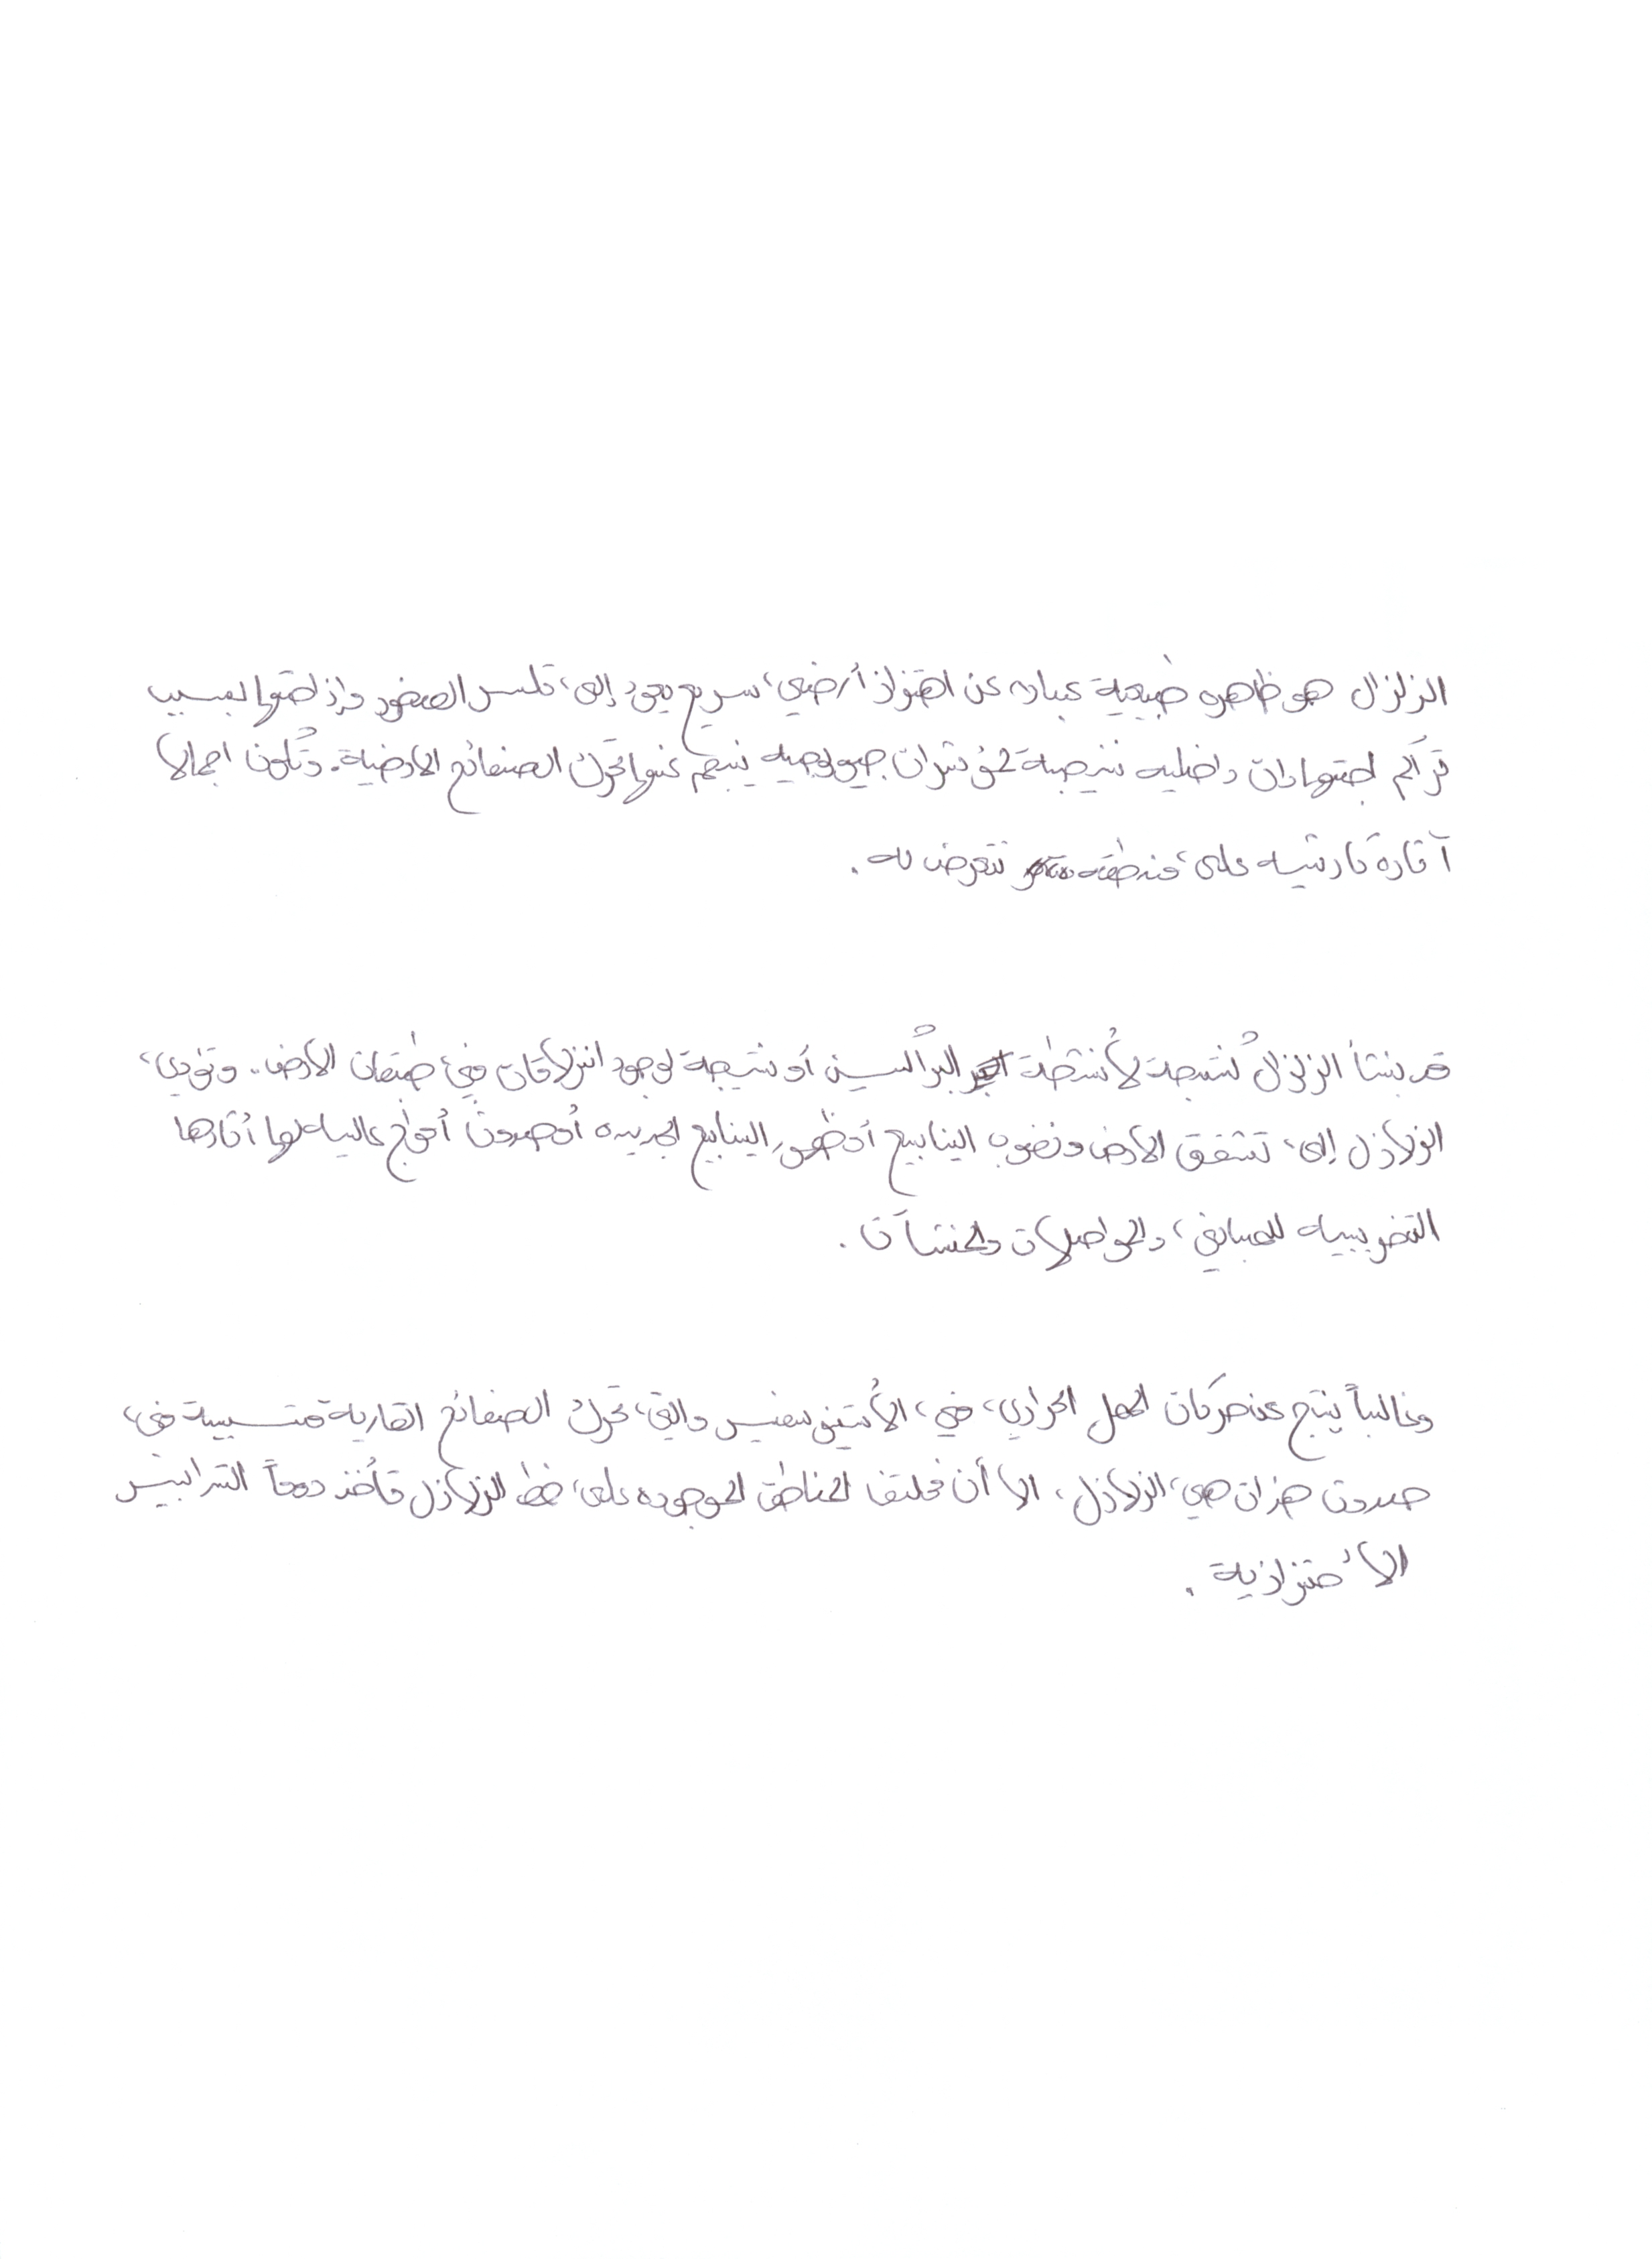 الزلزال هو ظاهره طبيعية عباره عن اهتزاز أرضي سريع يعود إلى تكسر الصخور وإزاحتها بسبب
تراكم اجتهادات داخليه نتيجة لمؤثرات جيولوجيه ينجم عنها تحرك الصفائح الارضية. وتكون اجمالا
آثاره كارثيه على منطقه تتعرض له .
قد ينشأ الزلزال كنتيجة لأنشطة البراكين أو نتيجة لوجود انزلاقات في طبقات الارض. وتؤدي
الزلازل إلى تشقق الارض ونضوب الينابيع أو ظهور الينابيع الجديده أو حدوث أمواج عاليه لها أثارها
التخريبيه للمباني والمواصلات والمنشآت .
وغالباً ينتج عن حركات الحمل الحراري في الأستينوسفير والتي تحرك الصفائح القارية متسببة في
حدوث هزات هي الزلازل ، الا أن مختلف المناطق الموجوده على خط الزلازل تأخذ دوماً التدابير
الأحتزازية .